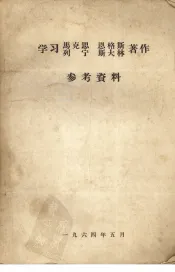 学习 馬克思 恩格斯 著作
列宁 斯大林
参考資料
一九六四年五月